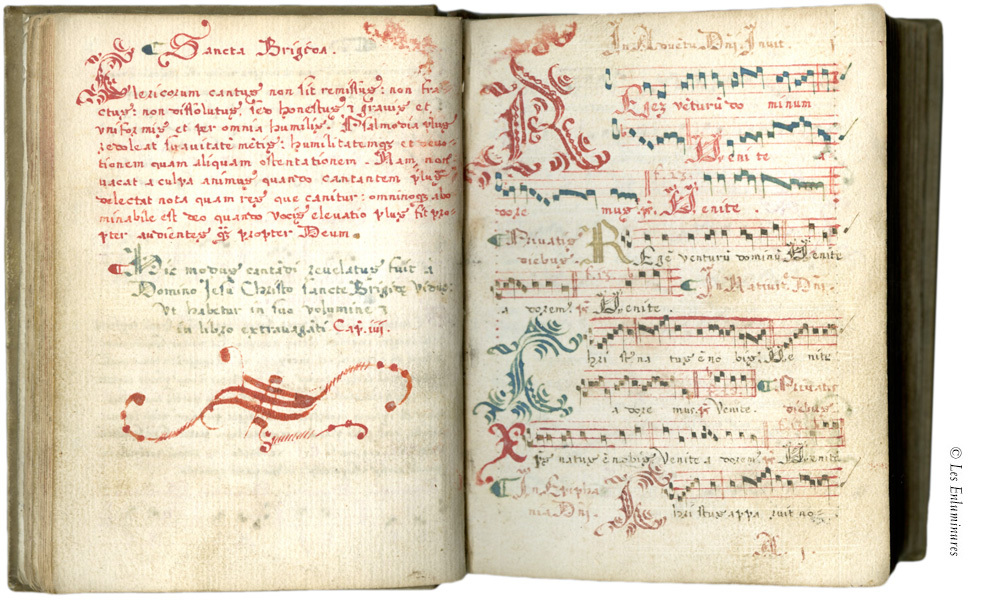 Sancta Brigida.
Clericorum cantus non sit remissus: non fra-
ctus: non dissolutus, sed honestus & gravis et
uniformis et per omnia humilis. Psalmodia plus
redoleat suavitatē mētis: humilitatemq et devo-
tionem quam aliquam ostentationem. Nam non
vacat a culpa animus quando cantantem plus
delectat nota quam res que canitur: omninoq abo
minabile est deo quando vocis elevatio plus fit pro-
pter audientes q̄ propter Deum.
Hic modus cantādi revelatus fuit a
Domino Jesu Christo sancte Brigide viduę:
Ut habetur in suo volumine &
in libro extravagāti Cap. iiij.
In Advētu Dn̄i. Invit.
Regē vēturū do minum
Venite
adore mus. ps. Venite.
Privatis
diebus. Regē venturū dominū Venite
a dorem. ps. Venite. In Nativit. Dn̄i.
Christ. na tus ē no bis. Ve nite
a dore mus. ps. Venite. Privatis
diebus.
Xps natus ē nobis Venite a dorem. ps. Venite
In Epipha
nia Dn̄i. Christus appa ruit no-
© Les Enluminures